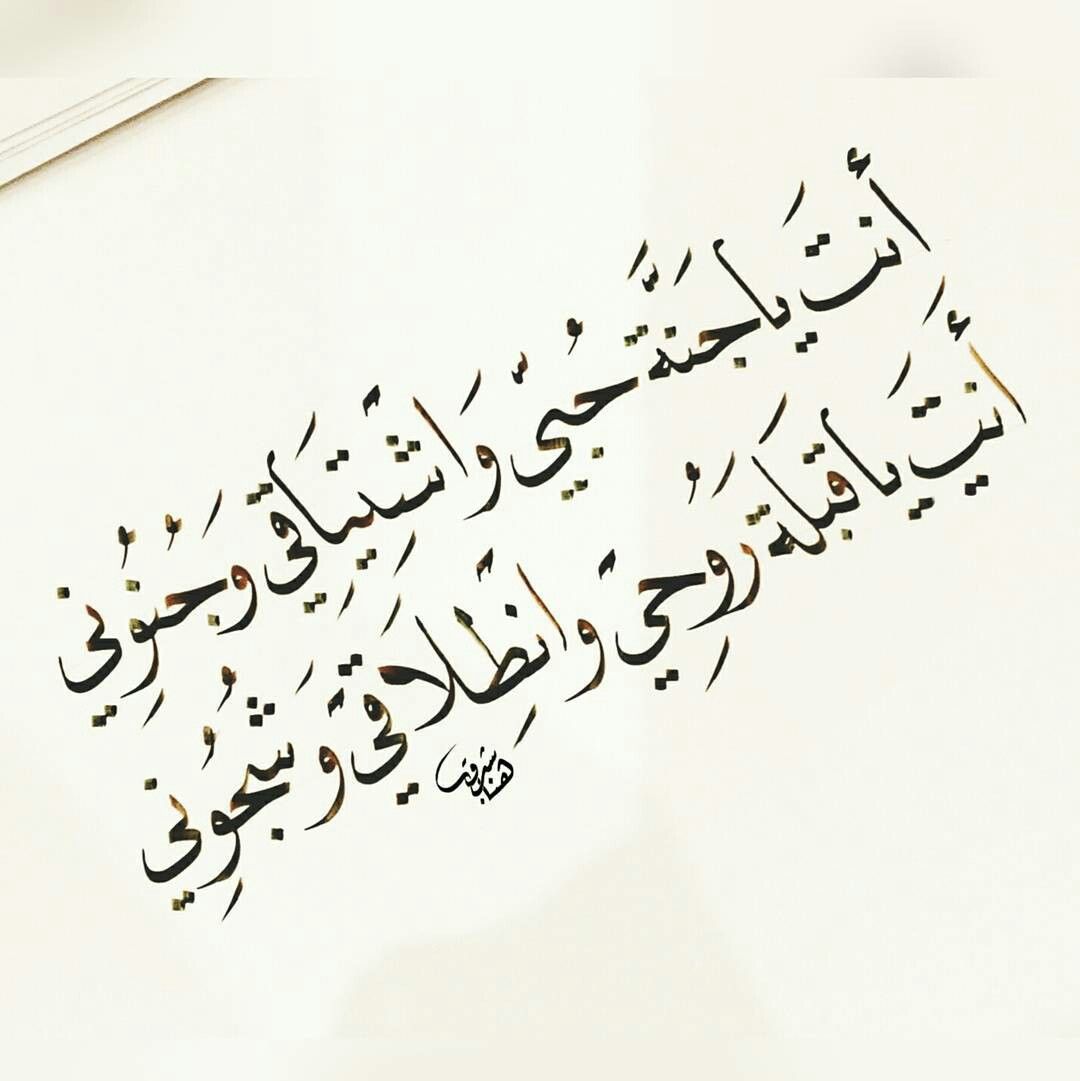 أنتَ يا جنَّةَ حُبّي وَاشْتِيَاقي وَجُنُوني
أنتَ يا قبلَة رُوحِي وَانْطِلَاقي وَشُجُوني